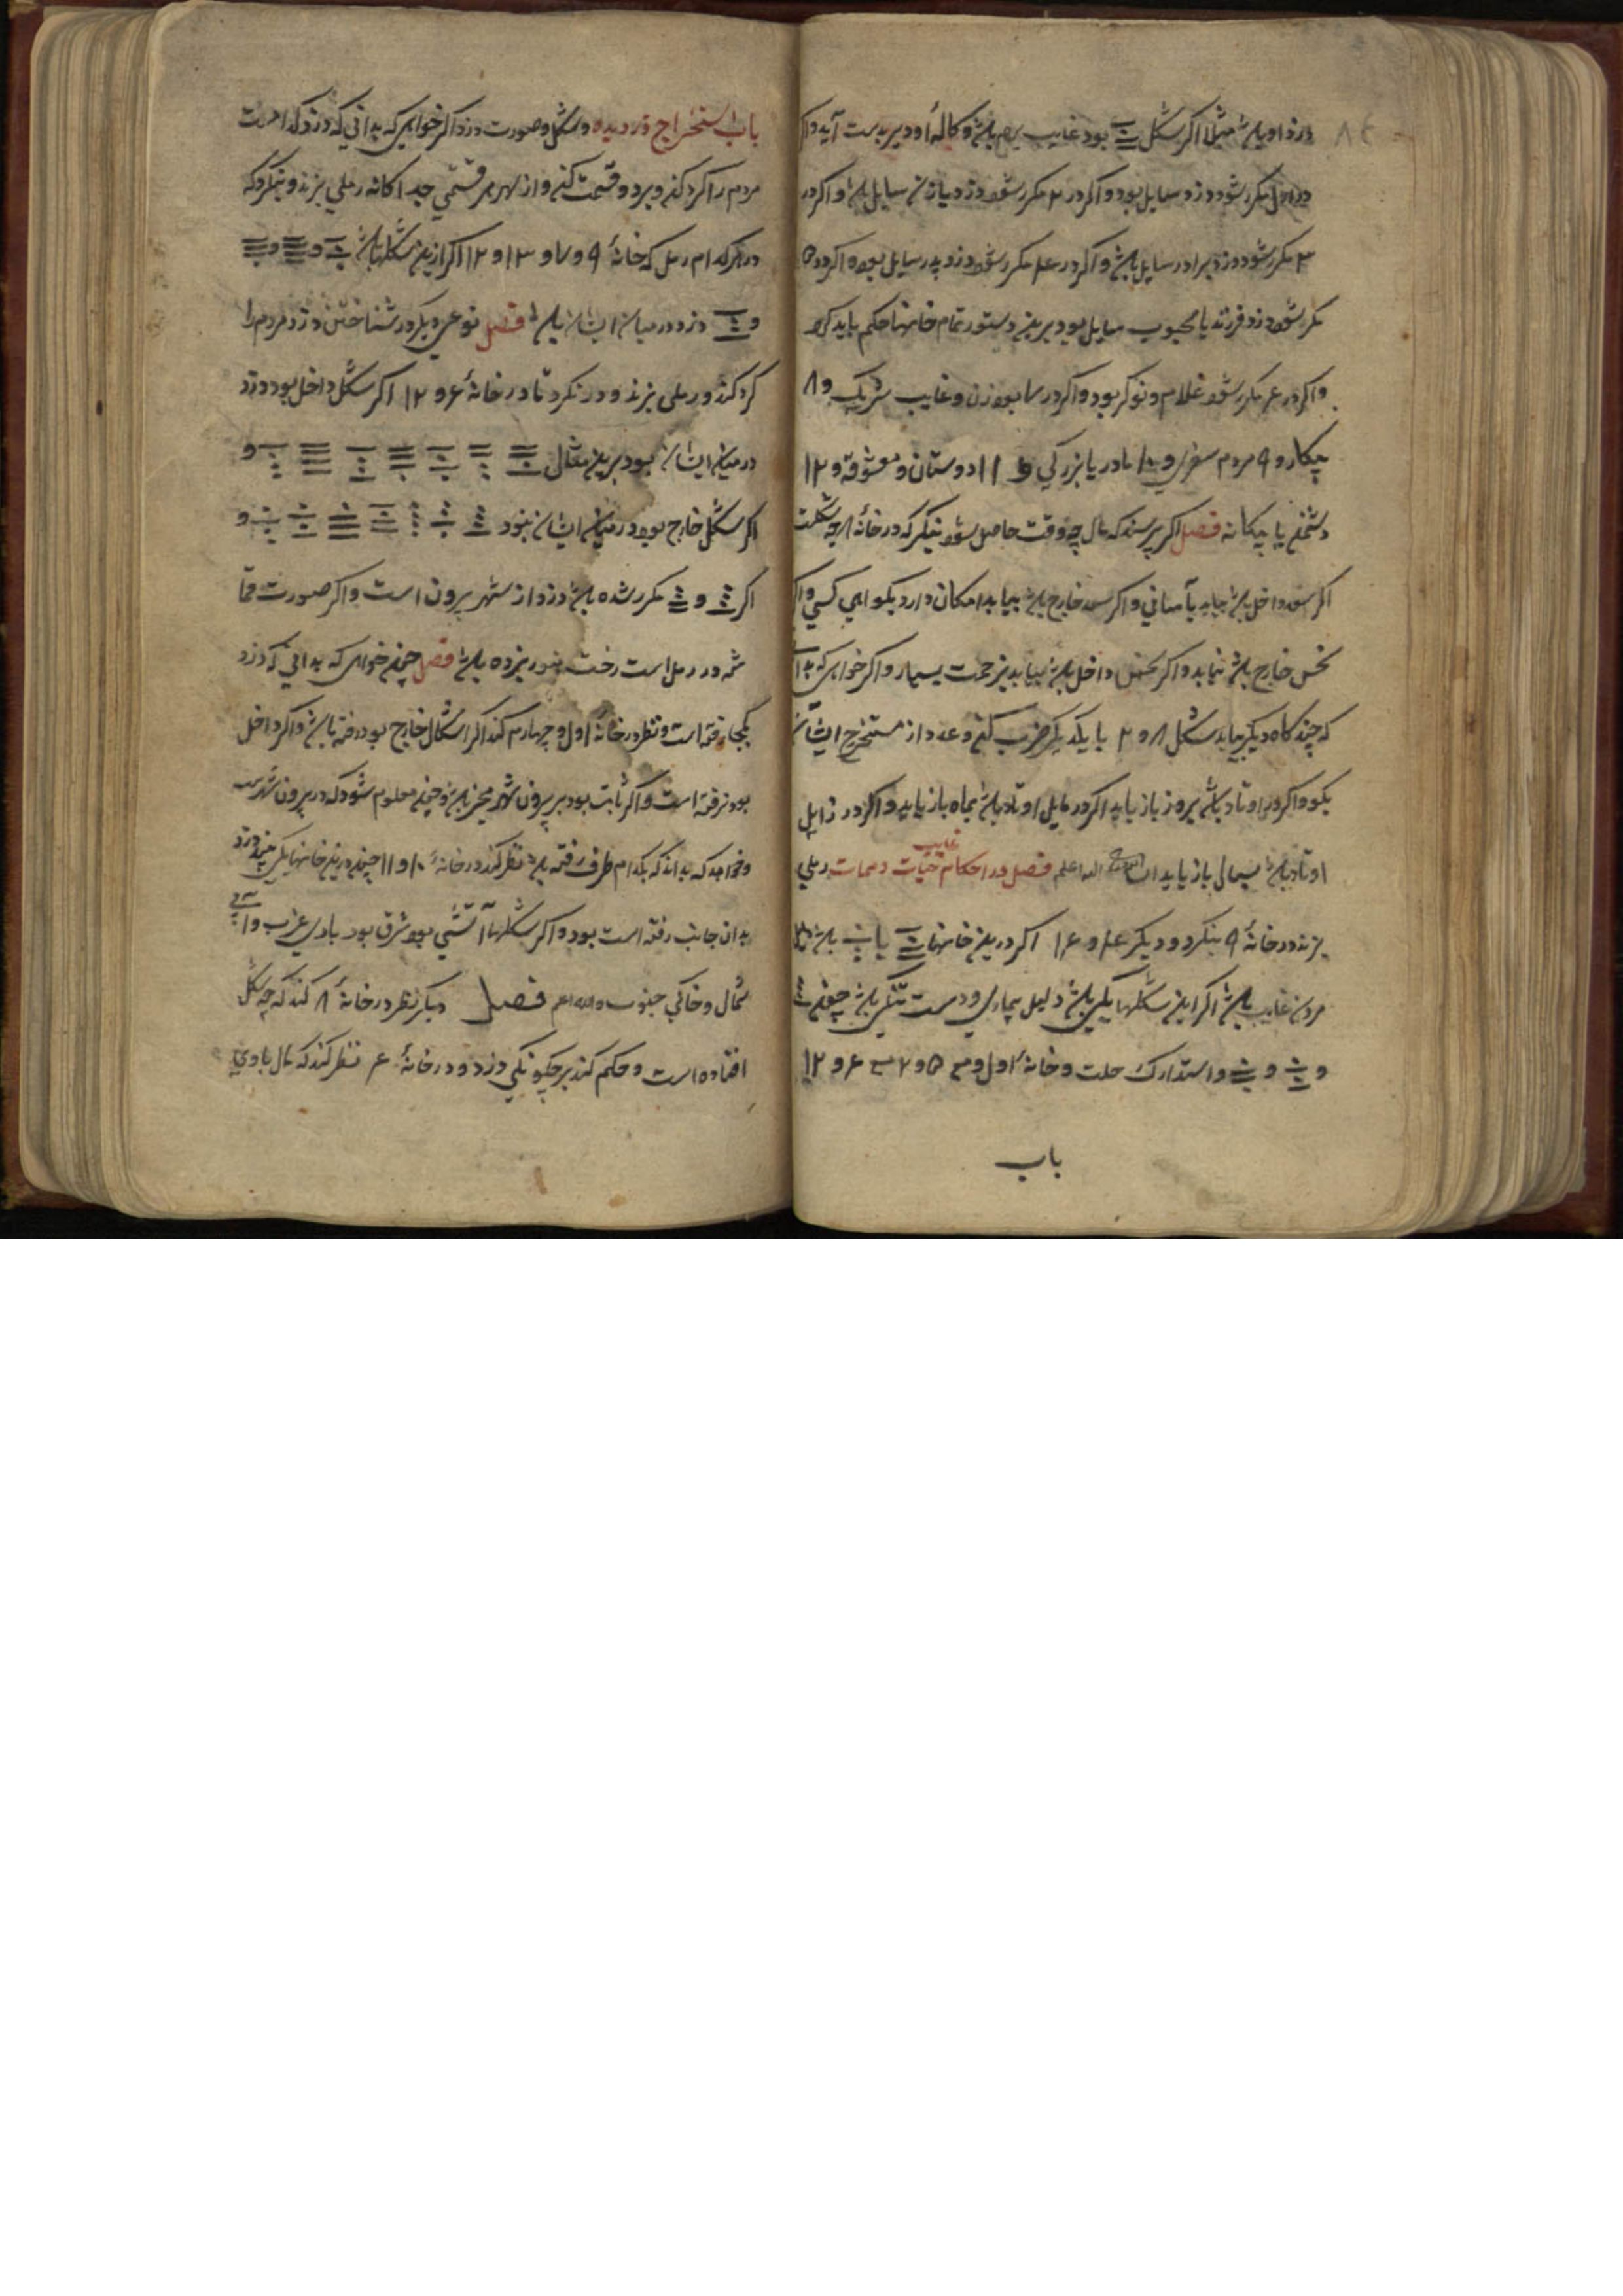 ۸۲
دزد او باشد مثلا اکر شکل بود غایب باشد و کالهٔ او دیر بدست آید و اکر
در اول مکرر شود دزد سایل بود و اکر در ۲ مکرر شود دزد سایل باشد و اکر در
۳ مکرر شود دزد برادر سایل باشد و اکر در ۴ مکرر شود دزد پدر سایل بود و اکر در ۵
مکرر شود دزد فرزند یا محبوب سایل بود برین دستور تمام خانها حکم باید کرد
و اکر در ۶ مکرر شود غلام و نوکر بود و اکر در ۷ بود زن و غایب شریک و ۸
بیکار و ۹ مردم سفری و ۱۰ مادر یا بزرکی و ۱۱ دوستان و معشوقه و ۱۲
دشمن یا بیکانه فصل اکر پرسند که مال چه وقت حاصل شود بنکر که در خانهٔ ۸ چه شکلست
اکر سعد داخل باشد بیابد بآسانی و اکر سعد خارج باشد بیابد امکان دارد بکواهی کسی و اکر
نحس خارج باشد نیابد و اکر نحس داخل باشد بیابد بزحمت بسیار و اکر خواهی که بدانی
که چند کاه دیکر بیابد شکل ۸ و ۲ با یکدیکر ضرب کن و عدد از مستخرج ایشان
بکو و اکر در اوتاد باشد بروز باز یابد اکر در مایل اوتاد باشد بماه باز یابد و اکر در زایل
اوتاد باشد بسالی باز یابد الله اعلم فصل در احکام حیات و ممات غایب رملی
بزند و در خانهٔ ۹ بنکرد و دیکر ۴ و ۱۶ اکر درین خانها یا باشد دلیل
مردن غایب باشد اکر این شکلها یکی باشد دلیل بیماری و دست تنکی باشد چون
و و و استدارک حلت و خانهٔ اول و ۵ و ۲ ۶ و ۱۲
باب
باب استخراج دزدیده و شکل و صورت دزد اکر خواهی که بدانی که دزد کدامست
مردم را کرد کن و بر دو قسمت کن و از بهر هر قسمی جداکانه رملی بزند و بنکرد که
در هر کدام رمل که خانهٔ ۹ و ۷ و ۳ و ۱۲ اکر ازین شکلها باشد و و
و دزد در میان ایشان باشد فصل نوعی دیکر در شناختن دزد مردم را
کرد کند و رملی بزند و در نکرد تا در خانهٔ ۶ و ۱۲ اکر شکل داخل بود دزد
در میان ایشان بود برین مثال و
اکر شکل خارج بود در میان ایشان نبود و
اکر و مکرر شده باشد دزد از شهر بیرون است و اکر صورت
در رمل است رخت هنوز نبرده باشد فصل چون خواهی که بدانی که دزد
بکجا رفته است نظر در خانهٔ اول و چهارم کند اکر اشکال خارج بود رفته باشد و اکر داخل
بود نرفته است و اکر ثابت بود بر بیرون شهر باشد و چون معلوم شود که در بیرون شهر است
و خواهد که بداند که بکدام طرف رفته باشد نظر کند در خانهٔ ۱۰ و ۱۱ چون درین خانها یکی بیند دزد
بدان جانب رفته است بود و اکر شکلها آتشی بود شرق بود بادی غرب و آبی
شمال و خاکی جنوب والله اعلم فصل دیکر نظر در خانهٔ ۸ کند که چه شکل
افتاده است و حکم کند بر چکونکی دزد و در خانهٔ ۴ نظر کند که مال بادی